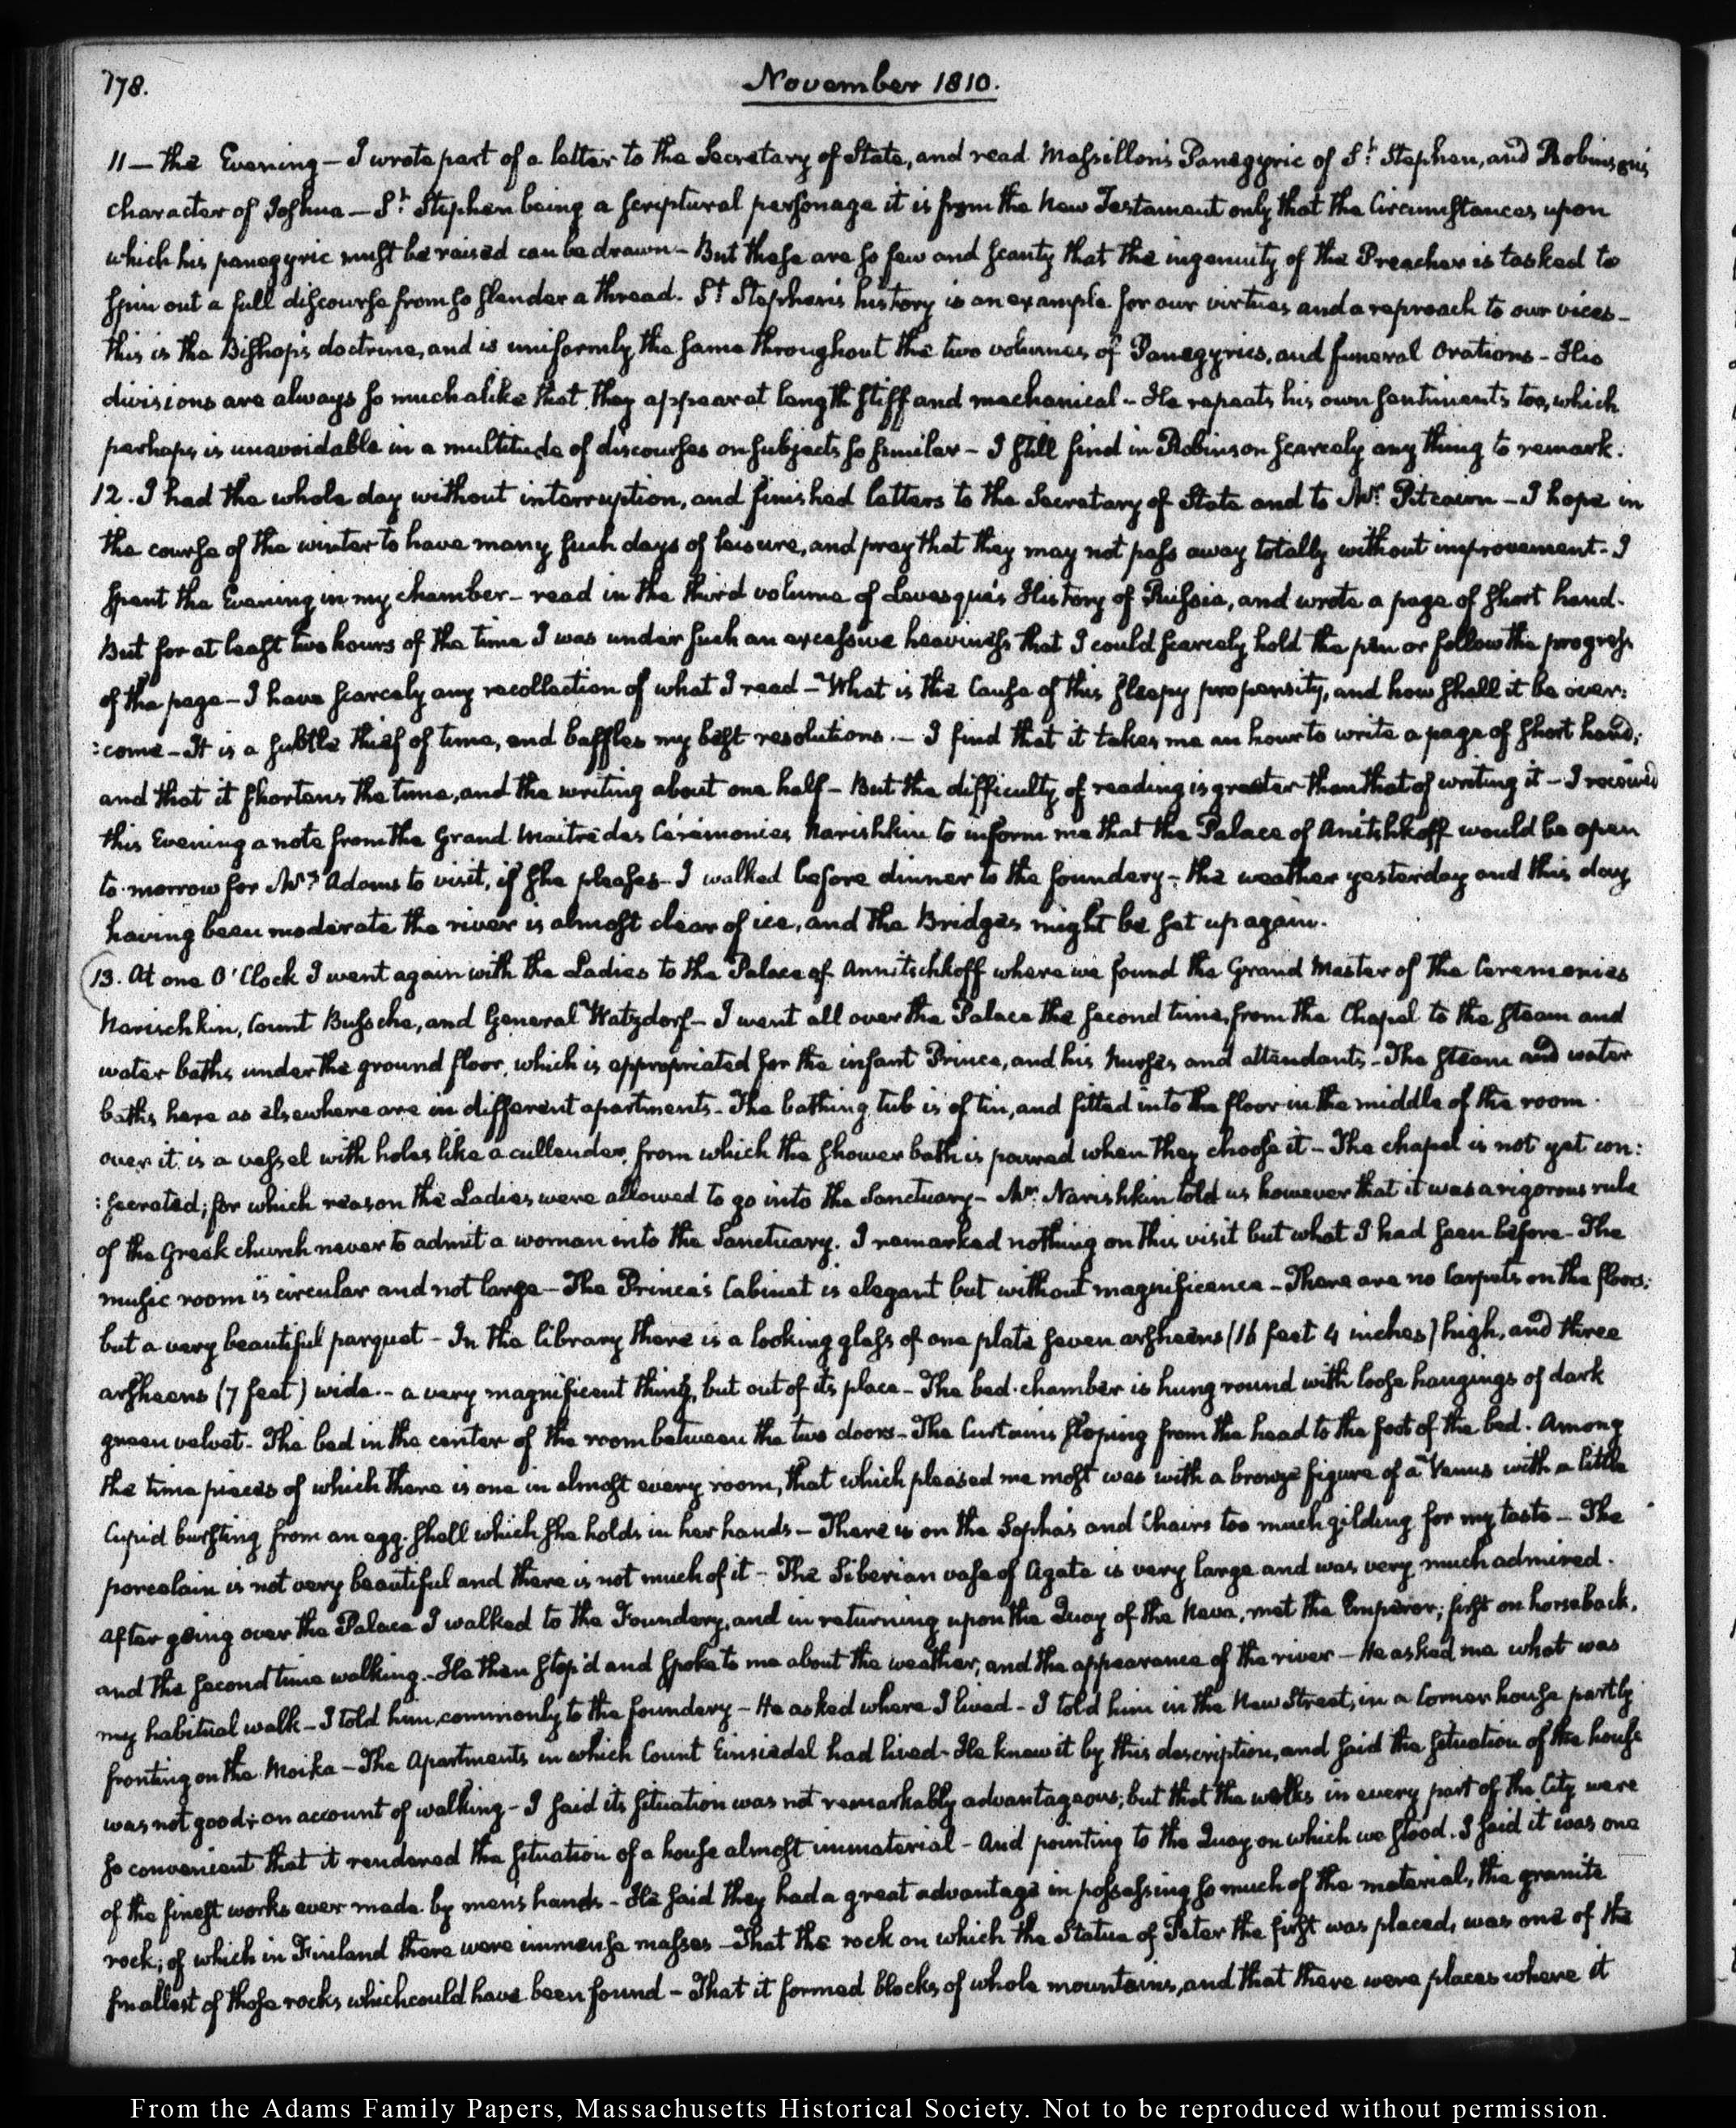 178.
November 1810.
11 — the Evening — I wrote part of a letter to the Secretary of State, and read Massillon's Panegyric of St. Stephen, and Robinson's
character of Joshua — St. Stephen being a scriptural personage it is from the New Testament only that the Circumstances upon
which his panegyric must be raised can be drawn — But these are so few and scanty that the ingenuity of the Preacher is tasked to
spin out a full discourse from so slender a thread. St. Stephen's history is an example for our virtues and a reproach to our vices —
this is the Bishop's doctrine, and is uniformly the same throughout the two volumes of Panegyrics, and funeral Orations — His
divisions are always so much alike that they appear at length stiff and mechanical — He repeats his own sentiments too, which
perhaps is unavoidable in a multitude of discourses on subjects so similar — I still find in Robinson scarcely any thing to remark.
12. I had the whole day without interruption, and finished letters to the Secretary of State and to Mr. Pitcairn — I hope in
the course of the winter to have many such days of leisure, and pray that they may not pass away totally without improvement — I
spent the Evening in my chamber — read in the third volume of Levesque's History of Russia, and wrote a page of short hand.
But for at least two hours of the time I was under such an excessive heaviness that I could scarcely hold the pen or follow the progress
of the page — I have scarcely any recollection of what I read — What is the Cause of this sleepy propensity, and how shall it be over:
:come — It is a subtle thief of time, and baffles my best resolutions. — I find that it takes me an hour to write a page of short hand;
and that it shortens the time, and the writing about one half — But the difficulty of reading is greater than that of writing it — I received
this Evening a note from the Grand Maitre des Cérémonies Narishkin to inform me that the Palace of Anitshkoff would be open
to-morrow for Mrs. Adams to visit, if she pleases — I walked before dinner to the foundery — the weather yesterday and this day
having been moderate the river is almost clear of ice, and the Bridges might be set up again.
13. At one O'Clock I went again with the Ladies to the Palace of Annitschkoff where we found the Grand Master of the Ceremonies
Narischkin, Count Bussche, and General Watzdorf — I went all over the Palace the second time, from the Chapel to the steam and
water baths under the ground floor, which is appropriated for the infant Prince, and his Nurses and attendants — The steam and water
baths here as elsewhere are in different apartments — The bathing tub is of tin, and fitted into the floor in the middle of the room.
over it is a vessel with holes like a cullender, from which the shower bath is poured when they choose it — The chapel is not yet con:
:secrated; for which reason the Ladies were allowed to go into the Sanctuary — Mr. Narishkin told us however that it was a rigorous rule
of the Greek church never to admit a woman into the Sanctuary. I remarked nothing on this visit but what I had seen before — The
music room is circular and not large — The Prince's Cabinet is elegant but without magnificence — There are no Carpets on the floors;
but a very beautiful parquet — In the library there is a looking glass of one plate seven arsheens (16 feet 4 inches) high, and three
arsheens (7 feet) wide — a very magnificent thing, but out of its place — The bed-chamber is hung round with loose hangings of dark
green velvet — The bed in the center of the room between the two doors — The Curtains sloping from the head to the foot of the bed. Among
the time pieces of which there is one in almost every room, that which pleased me most was with a bronze figure of a Venus with a little
Cupid bursting from an egg-shell which she holds in her hands — There is on the Sopha's and Chairs too much gilding for my taste — The
porcelain is not very beautiful and there is not much of it — The Siberian vase of Agate is very large and was very much admired.
After going over the Palace I walked to the Foundery, and in returning upon the Quay of the Neva, met the Emperor; first on horseback,
and the second time walking — He then stop'd and spoke to me about the weather, and the appearance of the river — He asked me what was
my habitual walk — I told him, commonly to the foundery — He asked where I lived — I told him in the New Street, in a Corner house partly
fronting on the Moika — The Apartments in which Count Einsiedel had lived — He knew it by this description, and said the situation of the house
was not good; on account of walking — I said its situation was not remarkably advantageous; but that the walks in every part of the City were
so convenient that it rendered the situation of a house almost immaterial — And pointing to the Quay on which we stood. I said it was one
of the finest works ever made by mens hands — He said they had a great advantage in possessing so much of the material, the granite
rock; of which in Finland there were immense masses — That the rock on which the Statue of Peter the first was placed, was one of the
smallest of those rocks which could have been found — That it formed blocks of whole mountains, and that there were places where it
From the Adams Family Papers, Massachusetts Historical Society. Not to be reproduced without permission.